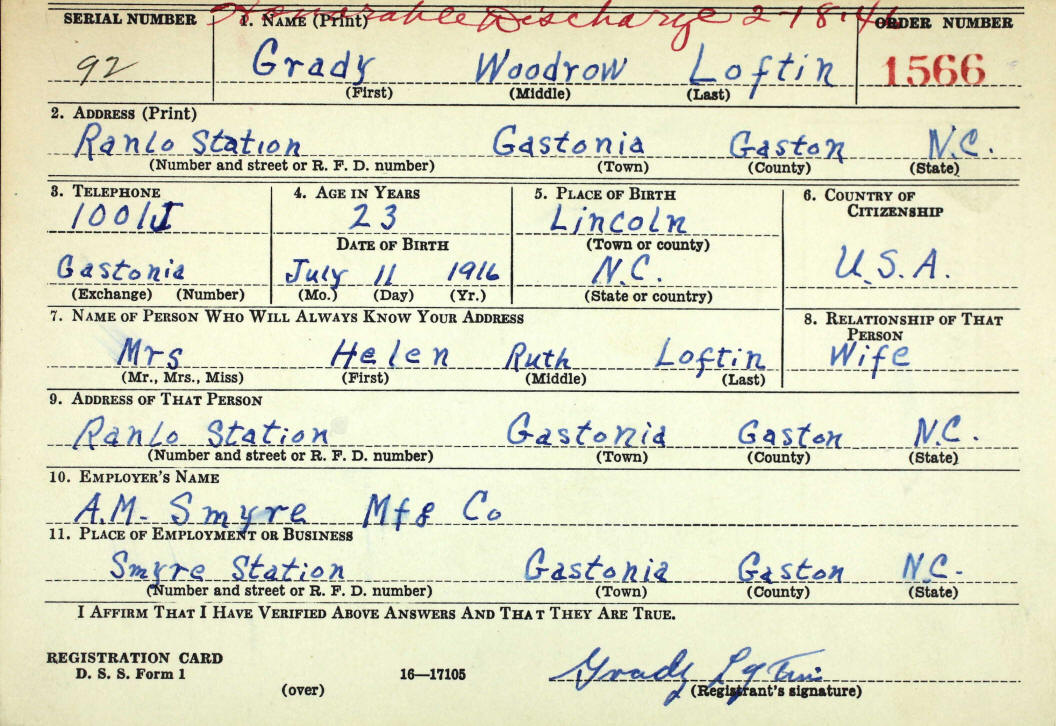 Honorable Discharge 2-18-46
SERIAL NUMBER 1. NAME (Print) ORDER NUMBER
92 Grady Woodrow Loftin 1566
(First) (Middle) (Last)
2. ADDRESS (Print)
Ranlo Station Gastonia Gaston N.C.
(Number and street or R. F. D. number) (Town) (County) (State)
3. TELEPHONE 4. AGE IN YEARS 5. PLACE OF BIRTH 6. COUNTRY OF CITIZENSHIP
1001J 23 Lincoln
DATE OF BIRTH (Town or county)
Gastonia July 11 1916 N.C. U.S.A.
(Exchange) (Number) (Mo.) (Day) (Yr.) (State or country)
7. NAME OF PERSON WHO WILL ALWAYS KNOW YOUR ADDRESS 8. RELATIONSHIP OF THAT PERSON
Mrs Helen Ruth Loftin Wife
(Mr., Mrs., Miss) (First) (Middle) (Last)
9. ADDRESS OF THAT PERSON
Ranlo Station Gastonia Gaston N.C.
(Number and street or R. F. D. number) (Town) (County) (State)
10. EMPLOYER'S NAME
A.M. Smyre Mfg Co
11. PLACE OF EMPLOYMENT OR BUSINESS
Smyre Station Gastonia Gaston N.C.
(Number and street or R. F. D. number) (Town) (County) (State)
I AFFIRM THAT I HAVE VERIFIED ABOVE ANSWERS AND THAT THEY ARE TRUE.
REGISTRATION CARD
D. S. S. Form 1 16—17105 Grady Loftin
(over) (Registrant's signature)